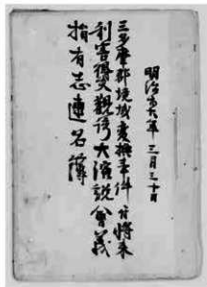 明治廿六年三月三十日
三多摩郡境域変換事件ニ付将来
利害得失観得大演説会義
指有志連名簿